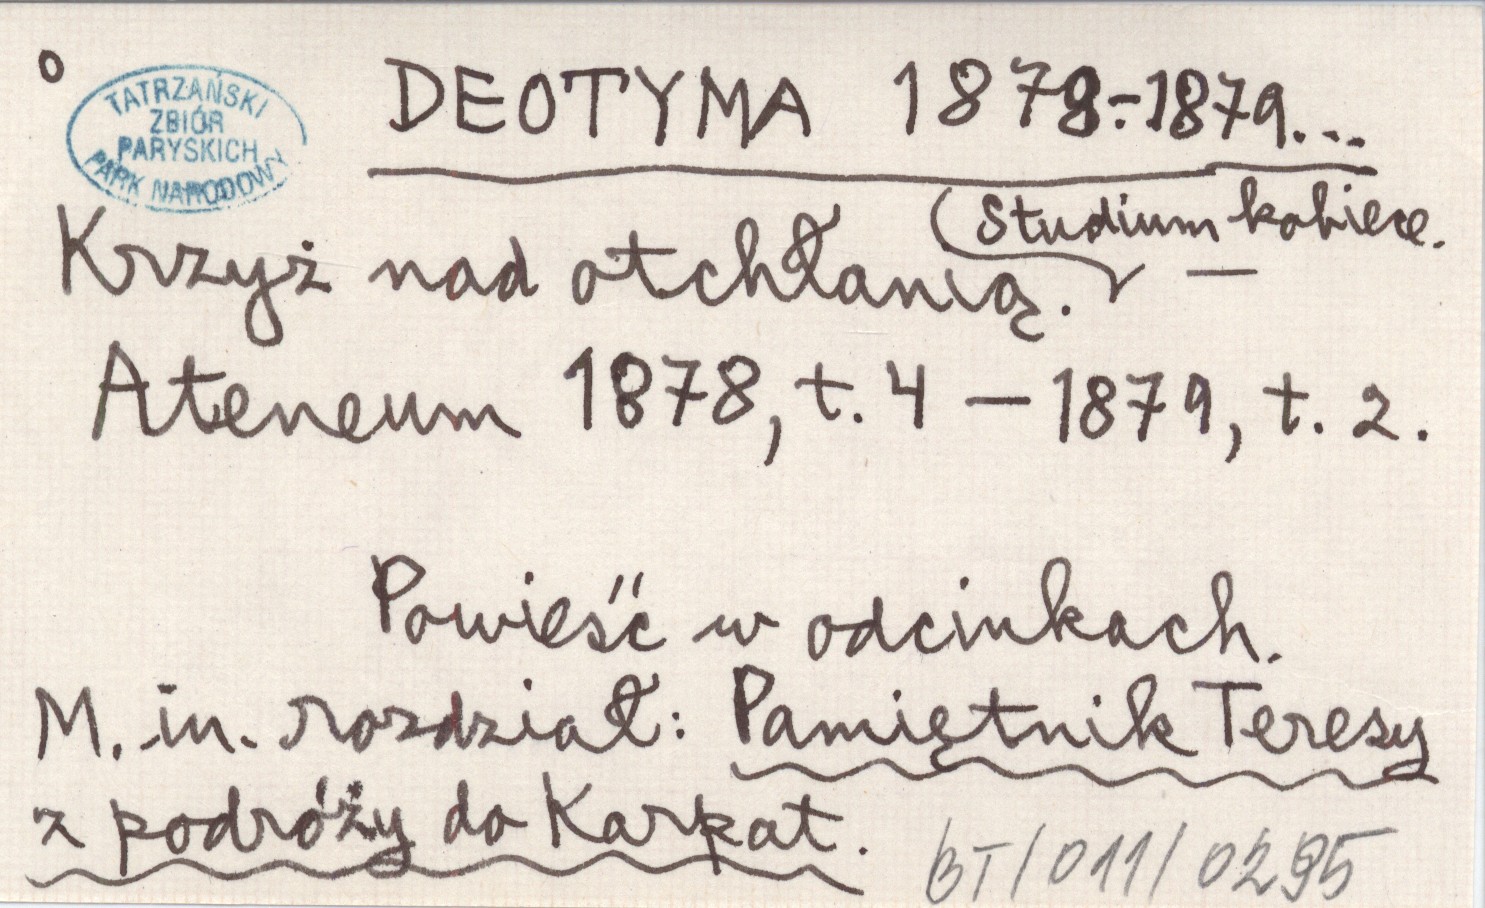 o
TATRZAŃSKI
ZBIÓR
PARYSKICH
PARK NARODOWY
DEOTYMA 1878-1879...
(Studium kobiece.
Krzyż nad otchłanią. —
Ateneum 1878, t. 4 — 1879, t. 2.
Powieść w odcinkach.
M. in. rozdział: Pamiętnik Teresy
z podróży do Karpat.
BT/011/0295